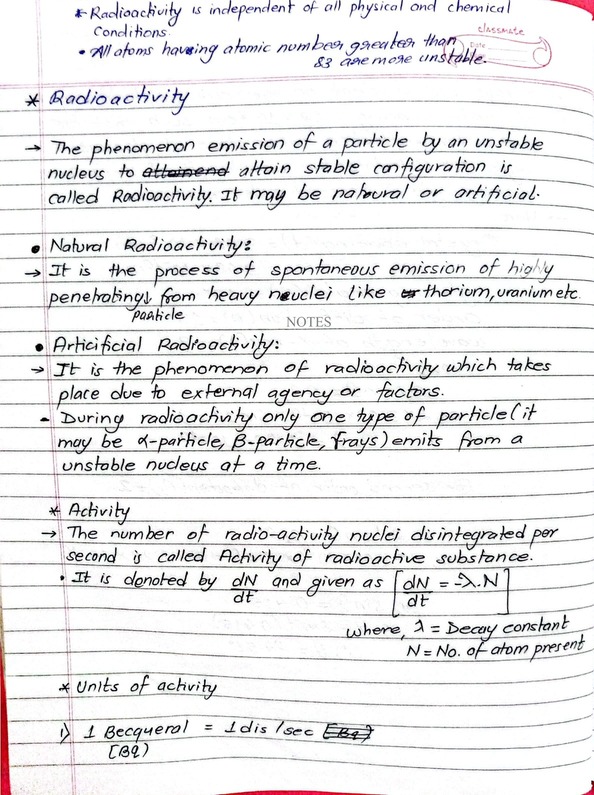 * Radioactivity is independent of all physical and chemical
Conditions.
classmate
Date
• All atoms having atomic number greater than
83 are more unstable.
* Radioactivity
→ The phenomenon emission of a particle by an unstable
nucleus to attainend attain stable configuration is
called Radioactivity. It may be natural or artificial.
• Natural Radioactivity:
→ It is the process of spontaneous emission of highly
penetrating↓ from heavy nuclei like thorium, uranium etc.
particle
NOTES
• Articificial Radioactivity:
→ It is the phenomenon of radioactivity which takes
place due to external agency or factors.
- During radioactivity only one type of particle (it
may be α-particle, β-particle, γrays) emits from a
unstable nucleus at a time.
* Activity
→ The number of radio-activity nuclei disintegrated per
second is called Activity of radioactive substance.
• It is denoted by dN/dt and given as [dN/dt = -λ.N]
where, λ = Decay constant
N = No. of atom present
* Units of activity
1) 1 Becqueral = 1 dis/sec [Bq]
[Bq)